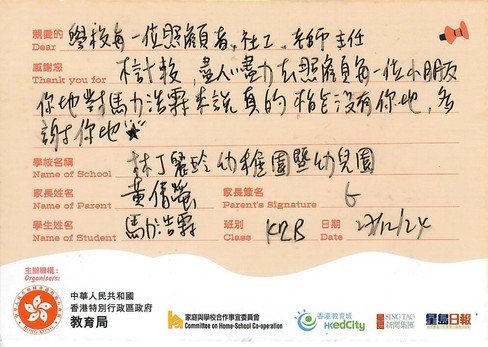 親愛的
Dear 學校每一位照顧者、社工、老師主任
感謝您
Thank you for 不計較，盡人心盡力去照顧每一位小朋友
你地對馬浩霖來說真的 沒有你地，多
謝你地
學校名稱
Name of School 林丁 幼稚園暨幼兒園
家長姓名
Name of Parent 黃
家長簽名
Parent's Signature
學生姓名
Name of Student 馬浩霖
班別
Class K2B
日期
Date 27/12/24
主辦機構：
Organisers:
中華人民共和國
香港特別行政區政府
教育局
家庭與學校合作事宜委員會
Committee on Home-School Co-operation
香港教育城
HKedCity
SING TAO
新聞集團
星島日報